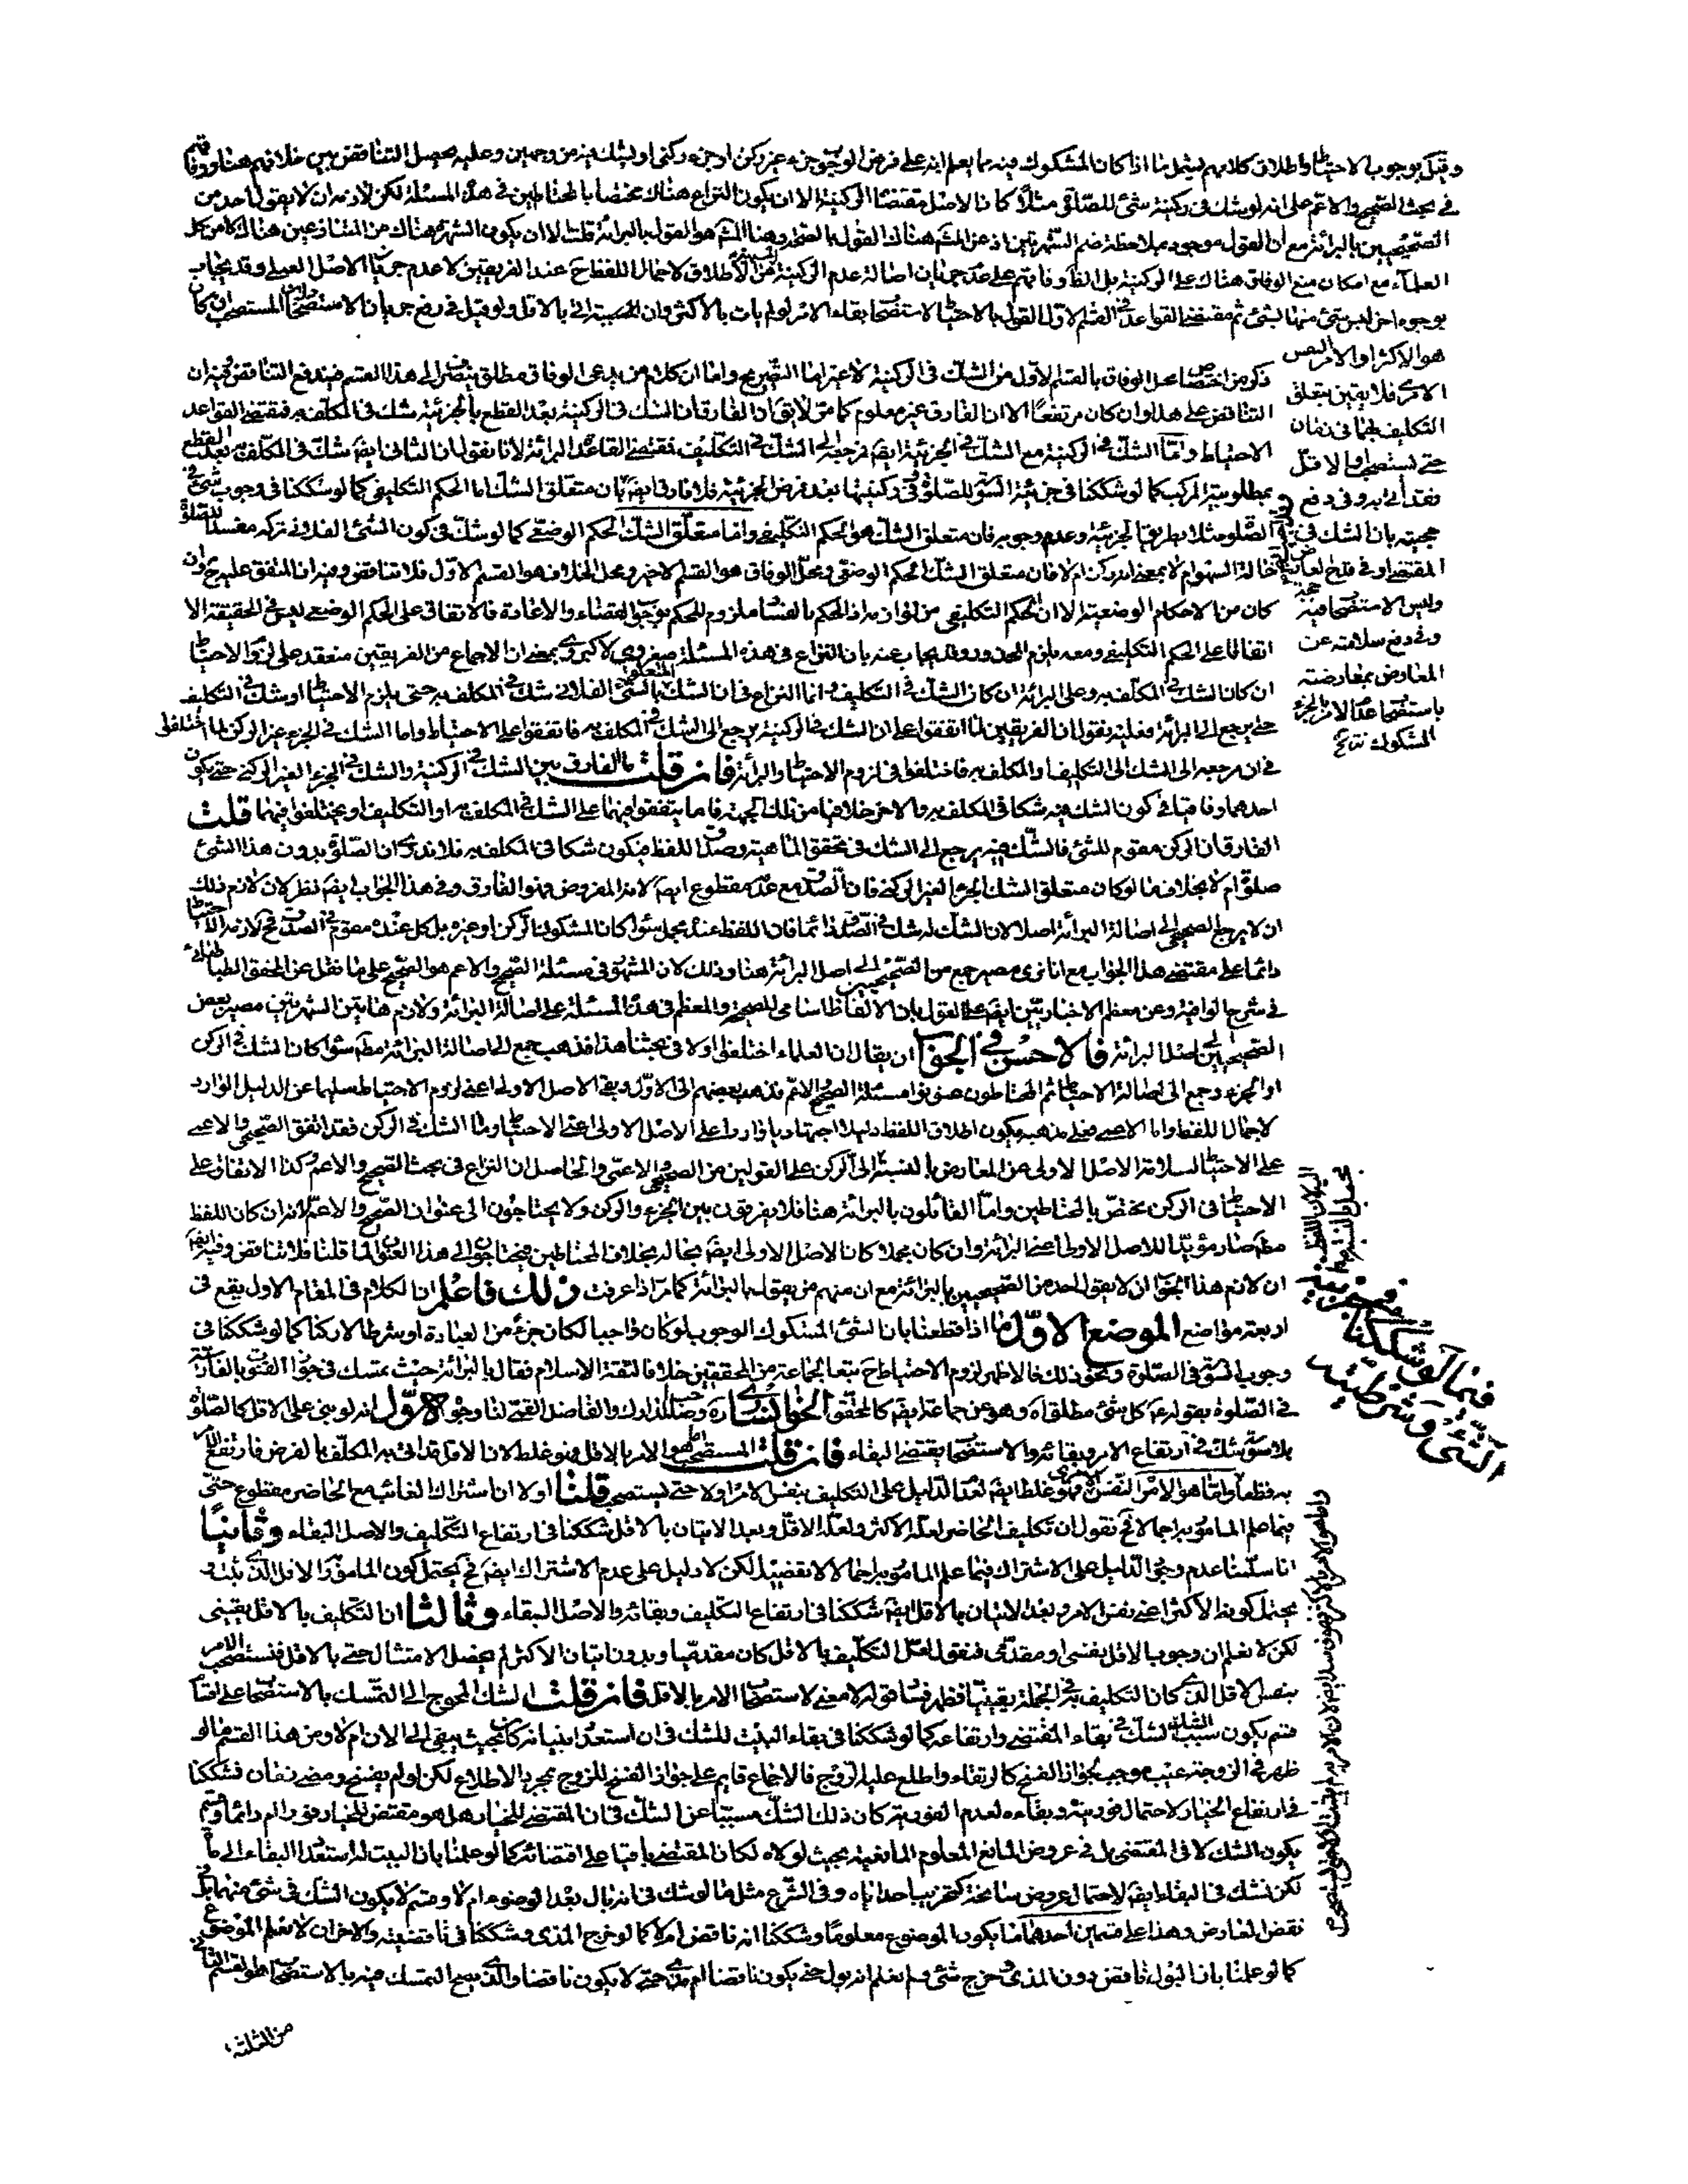 وقيل بوجوب الاحتياط واطلاق كلامهم يشمل ما اذا كان المشكوك فيه مما يعلم انه على فرض الوجوب جزء غير ركن او جزء ركني او يشك فيه من وجهين وعليه يحصل التناقض بين خلافهم هنا ووفاقهم
في بحث الصحيح والاعم على انه لو شك في ركنية شئ للصلوة مثلا كان الاصل مقتضيا الركنية الا ان يكون النزاع هناك مختصا بالمحتاطين في هذه المسئلة لكن لازمه ان لا يقول احد من
الصحيحيين بالبرائة مع ان القول موجود بملاحظة ضم الشهرتين اذ عن المشهور هناك القول بالصحة وهنا المشهور هو القول بالبرائة قلت الا ان يكون الشهرة هناك من المتنازعين هناك لا من كل
العلماء مع امكان منع الوفاق هناك على الركنية بل الظاهر وفاقهم على عدم جريان اصالة عدم الركنية من الاطلاق لاجمال اللفظ ح عند الفريقين لا عدم جريان الاصل العملي وقد يجاب
بوجوه اخر ليس شئ منها بشئ ثم مقتضى القواعد في القسم الاول القول بالاحتياط لاستصحاب بقاء الامر لو لم يات بالاكثر وان
هو الاكثر او الامر النفس
الامري فلا يقين بتعلق
التكليف بهما في زمان
حتى يستصحب واما الاقل
فقد أتى به وفي دفع
حجيته بان الشك في
المقتضي او في
وليس الاستصحاب فيه حجة
وفي دفع سلامته عن
المعارض بمعارضته
باستصحاب عدم الامر بالجزء
المشكوك
ذكر من اختصاص محل الوفاق بالقسم الاول من الشك في الركنية لاعتراضا التصريح واما ان كلام من يدعى الوفاق مطلق ينصرف الى هذا القسم فيندفع التناقض وفيه ان
التناقض على هذا وان كان مرتفعا الا ان الفارق غير معلوم كما مر لا يق ان الفارق ان الشك في الركنية بعد القطع بالجزئية شك في المكلف به فمقتضى القواعد
الاحتياط واما الشك في الركنية مع الشك في الجزئية ايضا فمرجعه الى الشك في التكليف فمقتضى القاعدة البرائة لانا نقول ان الثاني ايضا شك في المكلف به بعد القطع
بمطلوبية المركب كما لو شككنا في جزئية السورة للصلوة وفي ركنيتها بعد فرض الجزئية فلا فارق ايضا بان متعلق الشك اما الحكم التكليفي كما لو شككنا في وجوب شئ في
الصلوة مثلا بطريق الجزئية وعدم وجوبه فان متعلق الشك هو الحكم التكليفي واما متعلق الشك الحكم الوضعي كما لو شك في كون الشئ الفلاني تركه مفسدا للصلوة
حالة السهو ام لا بمعنى انه ركن ام لا فان متعلق الشك الحكم الوضعي ومحل الوفاق هو القسم الاخير ومحل الخلاف هو القسم الاول فلا تناقض وفيه ان المتفق عليه ح وان
كان من الاحكام الوضعية الا ان الحكم التكليفي من لوازمه اذ الحكم بالفساد ملزوم للحكم بوجوب القضاء والاعادة فالاتفاق على الحكم الوضعي ليس في الحقيقة الا
اتفاقا على الحكم التكليفي ومعه يلزم المحذور وقد يجاب عنه بان النزاع في هذه المسئلة صغروي لا كبروي بمعنى ان الاجماع من الفريقين منعقد على لزوم الاحتياط
ان كان الشك في المكلف به وعلى البرائة ان كان الشك في التكليف وانما النزاع في ان الشك المتعلق بالشئ الفلاني شك في المكلف به حتى يلزم الاحتياط او شك في التكليف
حتى يرجع الى البرائة فعليه نقول ان الفريقين لما اتفقوا على ان الشك في الركنية يرجع الى الشك في المكلف به فاتفقوا على الاحتياط واما الشك في الجزء غير الركن لما اختلفوا
في ان مرجعه الى الشك الى التكليف او المكلف به فاختلفوا في لزوم الاحتياط والبرائة فان قلت ما الفارق بين الشك في الركنية والشك في الجزء الغير الركني حتى يكون
احدهما وفاقيا في كون الشك فيه شكا في المكلف به والاخر خلافيا من تلك الجهة فاما يتفقوا فيهما على الشك في المكلف به او التكليف او يختلفوا فيهما قلت
الفارق ان الركن مقوم للشئ فالشك فيه يرجع الى الشك في تحقق الماهية وصدق اللفظ فيكون شكا في المكلف به فلا ندري ان الصلوة بدون هذا الشئ
صلوة ام لا بخلاف ما لو كان متعلق الشك الجزء الغير الركني فان الصدق مع عدمه مقطوع ايضا لانه المفروض فهو الفارق وفي هذا الجواب ايضا نظر لان لازم ذلك
ان لا يرجع الصحيحي الى اصالة البرائة اصلا لان الشك له شك في الصدق دائما فان اللفظ عنده مجمل سواء كان المشكوك الركن او غيره بل كل عنده مقوم في الصدق ح لازمه الاحتياط
دائما على مقتضى هذا الجواب مع انا نرى مصير جمع من الصحيحيين الى اصل البرائة هنا وذلك لان المشهور في مسئلة الصحيح والاعم هو الصحيح على ما نقل عن المحقق الطباطبائي
في شرح الوافية وعن معظم الاخباريين ايضا على القول بان الالفاظ اسامي للصحيح والمعظم في هذه المسئلة على اصالة البرائة ولازم هاتين الشهرتين مصير بعض
الصحيحيين الى اصل البرائة فالاحسن في الجواب ان يقال ان العلماء اختلفوا اولا في بحثنا هذا فذهب جمع الى اصالة البرائة مطلقا سواء كان الشك في الركن
او الجزء وجمع الى اصالة الاحتياط ثم المحتاطون عنونوا مسئلة الصحيح والاعم فذهب بعضهم الى الاول وبقى الاصل الاولى اعني لزوم الاحتياط سليما عن الدليل الوارد
لاجمال اللفظ واما الاعمي فعلى مذهبه يكون اطلاق اللفظ دليلا اجتهاديا واردا على الاصل الاولى اعني الاحتياط واما الشك في الركن فقد اتفق الصحيحي والاعمي
على الاحتياط لسلامة الاصل الاولى من المعارض بالنسبة الى الركن على القولين من الصحيحي والاعمى والحاصل ان النزاع في بحث الصحيح والاعم وكذا الاتفاق على
الاحتياط في الركن مختص بالمحتاطين واما القائلون بالبرائة هنا فلا يفرقون بين الجزء والركن ولا يحتاجون الى عنوان الصحيح والاعم لانه ان كان اللفظ
مطلقا صار مؤيدا للاصل الاولى اعني البرائة وان كان مجملا كان الاصل الاولى ايضا بحاله بخلاف المحتاطين فيحتاجون الى هذا العنوان لما قلنا فلا تناقض وفيه ايضا
ان لازم هذا الجواب ان لا يقول احد من الصحيحيين بالبرائة مع ان منهم من يقول بالبرائة كما مر اذا عرفت ذلك فاعلم ان الكلام في المقام الاول يقع في
اربعة مواضع الموضع الاول ما اذا قطعنا بان الشئ المشكوك الوجوب لو كان واجبا لكان جزء من العبادة او شرطا لا ركنا كما لو شككنا في
وجوب السورة في الصلوة ونحو ذلك فالاظهر لزوم الاحتياط ح تبعا لجماعة من المحققين خلافا لثقة الاسلام فقال بالبرائة حيث تمسك في جواز القنوت بالفارسية
في الصلوة بقوله ع كل شئ مطلق اه وهو عن جماعة ايضا كالمحقق الخوانساري ره وصاحب المدارك والفاضل القمي لنا وجوه الاول انه لو بنى على الاقل كالصلوة
بلا سورة شك في ارتفاع الامر وبقائه والاستصحاب يقتضى البقاء فان قلت المستصحب اما هو الامر بالاقل فهو غلط لان الاقل قد اتى به المكلف بالفرض فارتفع الامر
به قطعا واما هو الامر النفس الامري فهو غلط ايضا لعدم الدليل على التكليف بنفس الامر اولا حتى يستصحب قلنا اولا ان اشتراك الغائب مع الحاضر مقطوع حتى
فيما علم المامور به اجمالا فح نقول ان تكليف الحاضر لعله الاكثر ولعله الاقل وبعد الاتيان بالاقل شككنا في ارتفاع التكليف والاصل البقاء وثانيا
انا سلمنا عدم وجود الدليل على الاشتراك فيما علم المامور به اجمالا لا تفصيلا لكن لا دليل على عدم الاشتراك ايضا فح يحتمل كون المامور به الاقل الذي ثبت و
يحتمل كونه الاكثر اعني نفس الامر وبعد الاتيان بالاقل ايضا شككنا في ارتفاع التكليف وبقائه والاصل البقاء وثالثا ان التكليف بالاقل يقيني
لكن لا نعلم ان وجوب الاقل نفسي او مقدمي فنقول لعل التكليف بالاقل كان مقدميا وبدون اتيان الاكثر لم يحصل الامتثال حتى بالاقل فنستصحب الامر
بنفس الاقل الذي كان التكليف به في الجملة يقينيا فظهر فساد قوله لا معنى لاستصحاب الامر بالاقل فان قلت الشك المحوج الى التمسك بالاستصحاب على اقسام
قسم يكون سبب الشك الشك في بقاء المقتضى وارتفاعه كما لو شككنا في بقاء البيت للشك في ان استعداد بنيانه كان بحيث يبقى الى الان ام لا ومن هذا القسم ما لو
ظهر في الزوجة عيب موجب لجواز الفسخ كالرتقاء واطلع عليه الزوج فالاجماع قايم على جواز الفسخ للزوج بمجرد الاطلاع لكن لو لم يفسخ ومضى زمان فشككنا
في ارتفاع الخيار لاحتمال فوريته وبقاءه لعدم الفورية كان ذلك الشك مسببا عن الشك في ان المقتضى للخيار هل هو مقتض للخيار فورا ام دائما وقسم
يكون الشك لا في المقتضى بل في عروض المانع المعلوم المانعية بحيث لولاه لكان المقتضى باقيا على اقتضائه كما لو علمنا بان البيت له استعداد البقاء الى مأة
لكن نشك في البقاء ايضا لاحتمال عروض سانحة كتخريب احد اياه وفي الشرع مثل ما لو شك في انه بال بعد الوضوء ام لا وقسم لا يكون الشك في شئ منهما بل في
نقض العارض وهذا على قسمين احدهما ما يكون الموضوع معلوما وشككنا انه ناقض ام لا كما لو خرج المذي وشككنا في ناقضيته والاخر ان لا نعلم الموضوع
كما لو علمنا بان البول ناقض دون المذي وخرج شئ ولم نعلم انه بول حتى يكون ناقضا ام مذي حتى لا يكون ناقضا والذي يصح التمسك فيه بالاستصحاب هو القسم الثاني
من الثلثة